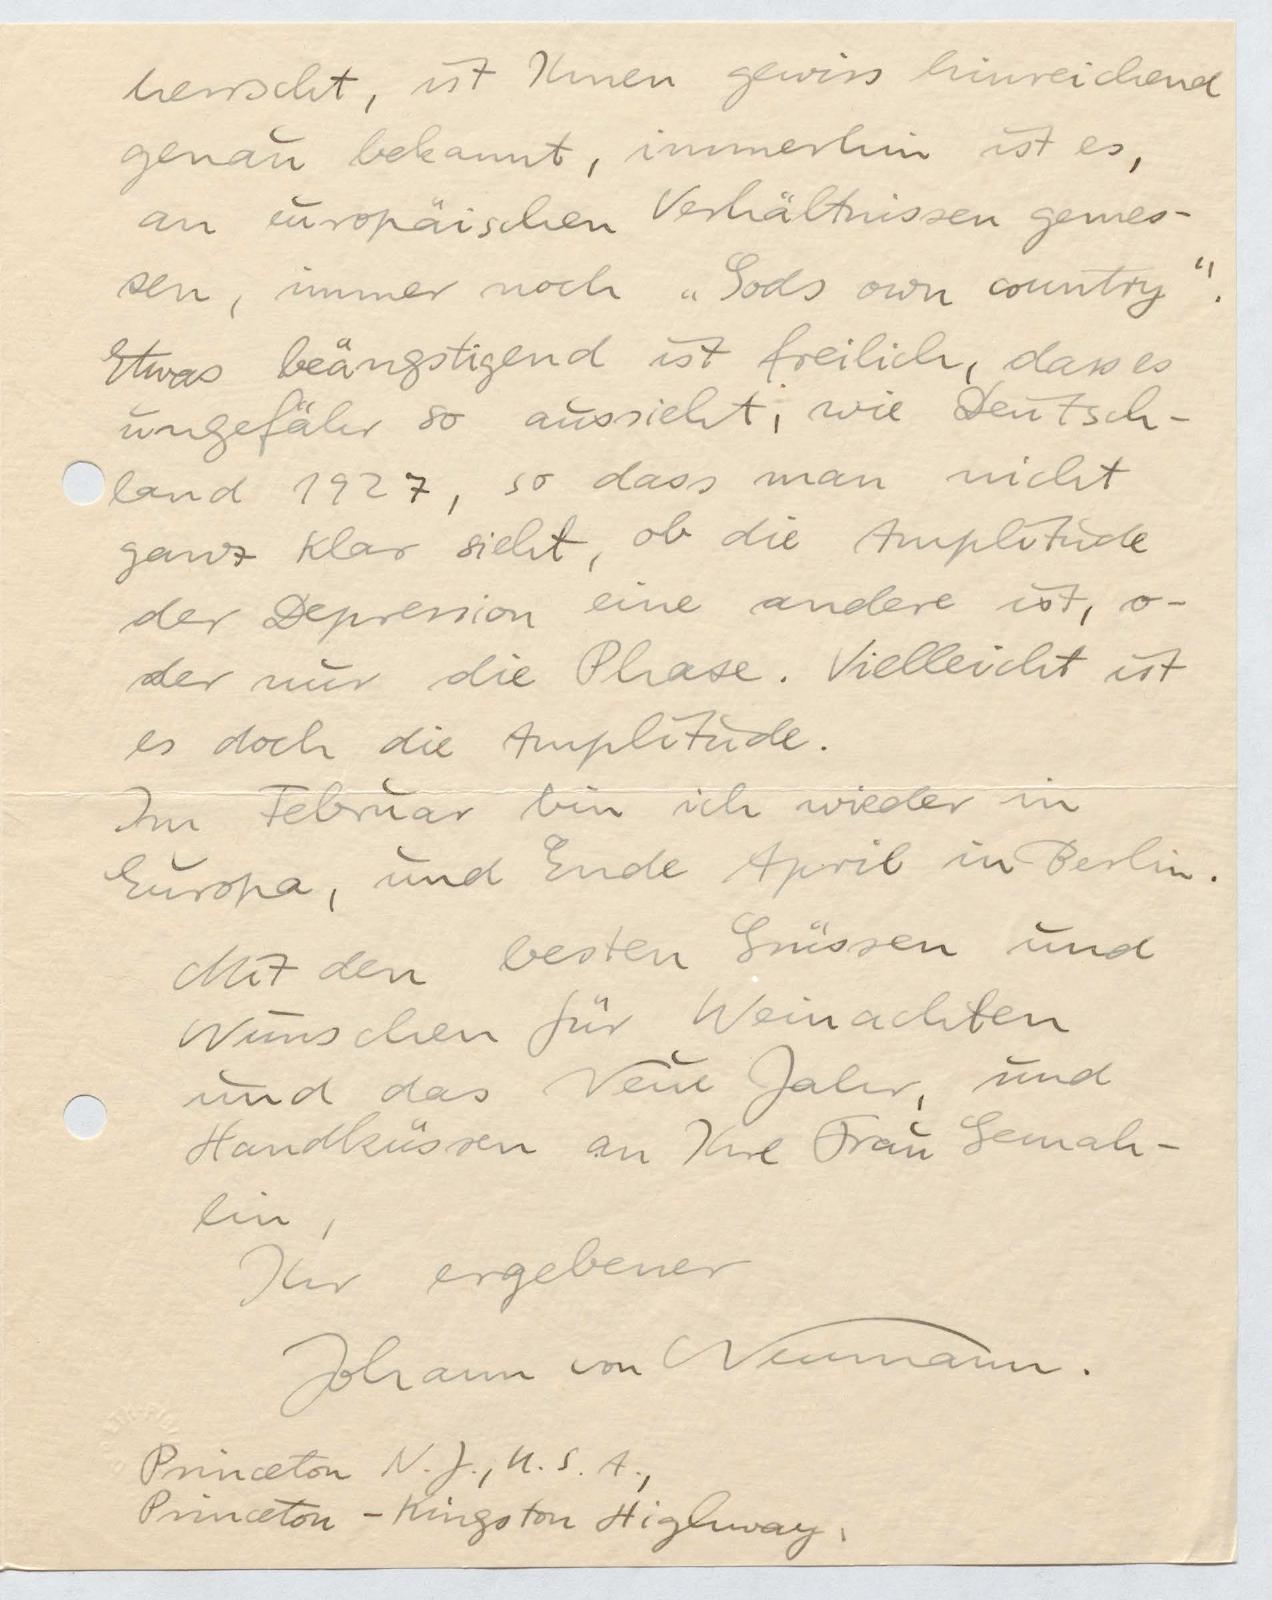 herrscht, ist Ihnen gewiss hinreichend
genau bekannt, immerhin ist es,
an europäischen Verhältnissen gemes-
sen, immer noch „Gods own country“.
Etwas beängstigend ist freilich, dass es
ungefähr so aussieht, wie Deutsch-
land 1927, so dass man nicht
ganz klar sieht, ob die Amplitude
der Depression eine andere ist, o-
der nur die Phase. Vielleicht ist
es doch die Amplitude.
Im Februar bin ich wieder in
Europa, und Ende April in Berlin.
Mit den besten Grüssen und
Wünschen für Weinachten
und das Neue Jahr, und
Handküssen an Ihre Frau Gemah-
lin,
Ihr ergebener
Johann von Neumann.
Princeton N. J., U. S. A.,
Princeton - Kingston Highway.